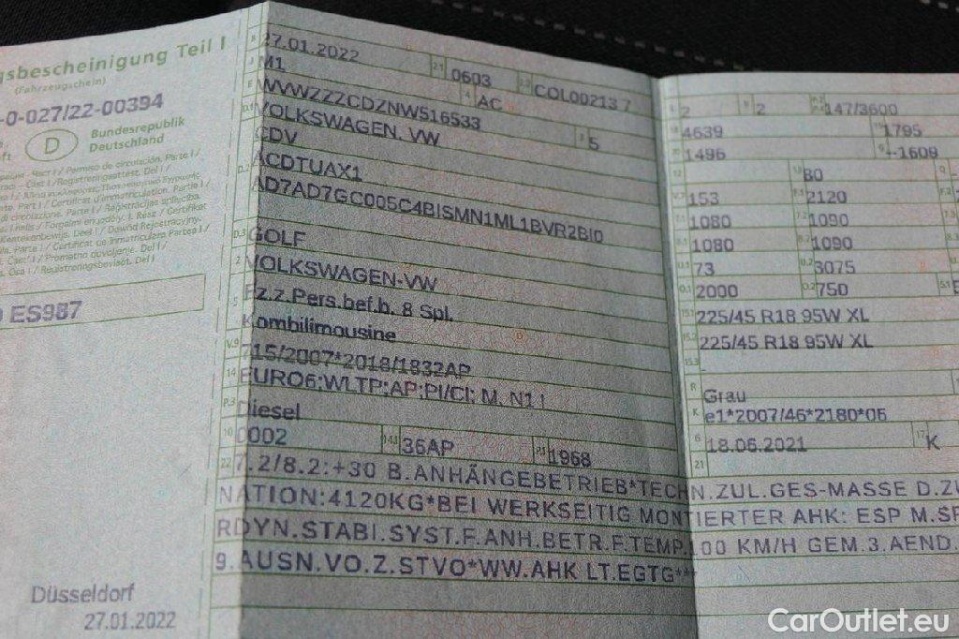 gsbescheinigung Teil I
(Fahrzeugschein)
-0-027/22-00394
D
Bundesrepublik
Deutschland
ES987
Düsseldorf
27.01.2022
B 27.01.2022 2.1 0603 2.2 COL00213 7
J M1 4 AC
E WVWZZZCDZNW516533 3 5
D.1 VOLKSWAGEN, VW
CDV
D.2 ACDTUAX1
AD7AD7GC005C4BISMN1ML1BVR2BI0
D.3 GOLF
2 VOLKSWAGEN-VW
5 Fz.z.Pers.bef.b. 8 Spl.
Kombilimousine
V.9 715/2007*2018/1832AP
14 EURO6;WLTP;AP;PI/CI; M, N1 I
P.3 Diesel
10 0002 14.1 36AP P.1 1968
22 7.2/8.2:+30 B.ANHÄNGEBETRIEB*TECHN.ZUL.GES-MASSE D.ZU
NATION:4120KG*BEI WERKSEITIG MONTIERTER AHK: ESP M.SP
RDYN.STABI.SYST.F.ANH.BETR.F.TEMP.100 KM/H GEM.3.AEND.
9.AUSN.VO.Z.STVO*WW.AHK LT.EGTG***
L 2 9 2 P.2 P.4 147/3600
18 4639 19 1795
20 1496 G --1609
12 13 80 Q
V.7 153 F.1 2120 F.2
7.1 1080 7.2 1090 7.3
8.1 1080 8.2 1090 8.3
U.1 73 U.2 3075
O.1 2000 O.2 750 S.1
15.1 225/45 R18 95W XL
15.2 225/45 R18 95W XL
15.3
R Grau
K e1*2007/46*2180*06
6 18.06.2021 17 K
21
CarOutlet.eu